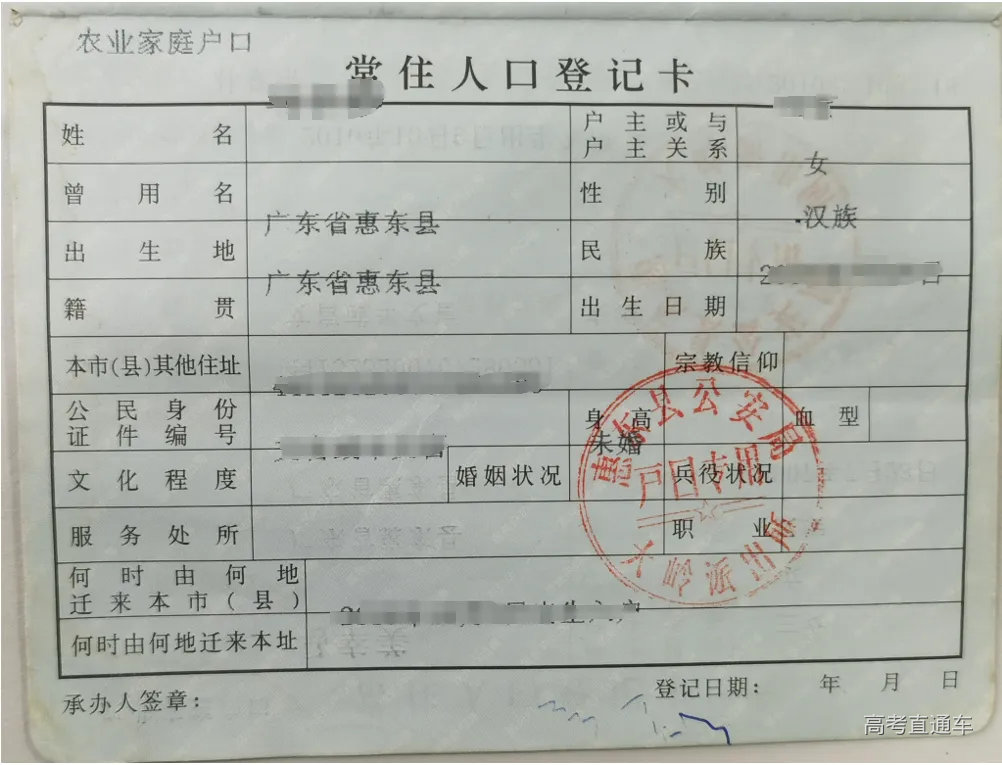 农业家庭户口
常住人口登记卡
姓名
户主或与
户主关系
曾用名
性别
女
出生地
广东省惠东县
民族
汉族
籍贯
广东省惠东县
出生日期
日
本市(县)其他住址
宗教信仰
公民身份
证件编号
身高
血型
文化程度
婚姻状况
未婚
兵役状况
服务处所
职业
何时由何地
迁来本市(县)
何时由何地迁来本址
惠东县公安局
户口专用
大岭派出所
承办人签章:
登记日期: 年 月 日
高考直通车